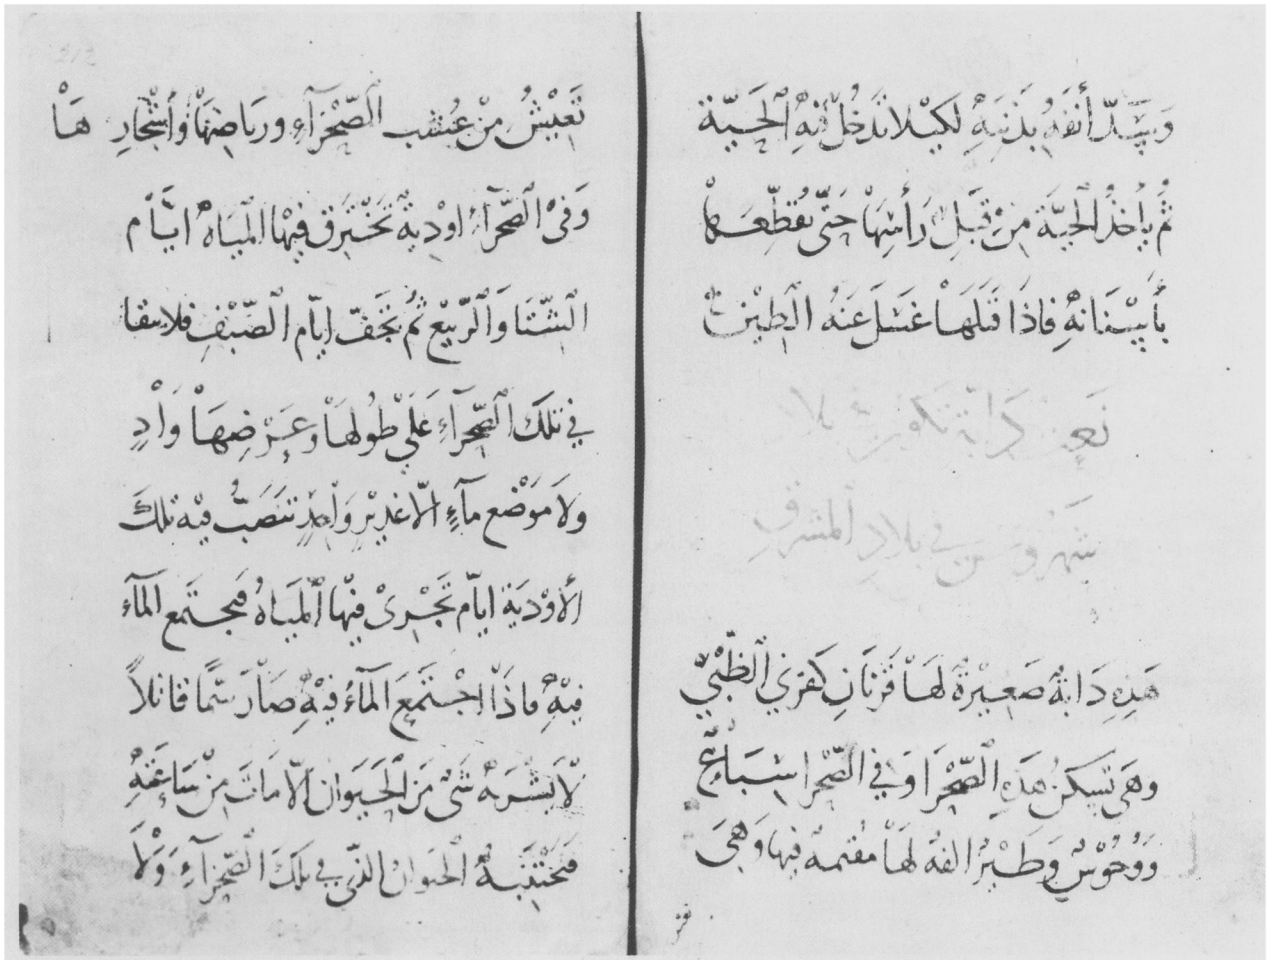 وَيَسُدّ أنفَهُ بِذَنَبِهِ لَكَيْلا تَدْخُلَ فِيْهِ الْحَيّة
ثُمَّ يأخُذُ الحيَّة مِنْ قِبَلِ رَأْسِهَا حَتّى يُقطّعَهَا
بأَسْنَانهِ فاذَا قَتَلَهَا غَسَلَ عَنهُ الطِيْن
نَعت دَابّة تكون ببلاد
في بلادِ المشرق
هَذِهِ دَابّةٌ صَغيرَةٌ لهَا قَرنَانِ كَقَرني الظّبْيّ
وهَى تَسكنُ هَذِهِ الصّحْرَا وَفي الصّحْرا سِبَاعٌ
وَوُحُوْشٌ وَطَيْرٌ الفة لهَا مُقيمة فيها وَهيَ
تَعِيْشُ مِنْ عُشب الصّحْرَآءِ ورياضهَا وأشْجارِ هَا
وَفىْ الصّحرَآءِ اوْدِيةٌ تَخْتَرق فِيْهَا المِيَاهُ ايّام
الشّتَا وَالرّبيْعِ ثمُ تَجَفّ ايّام الصّيْفِ فلا يبقا
في تلكَ الصّحرآءِ عَلَى طُولهَا وَعَرْضِهَا وَادٍ
ولَا مَوْضع مَآءٍ الّا غديْر وَاحِدٍ تنصَبُّ فيْه تلكَ
الأوْديَة ايّام تَجْرِىْ فيْها المِيَاهُ فيجتَمع المآء
فيْهِ فاذَا اجْتَمَعَ المَآءُ فيْهِ صَارَ سَمًّا قاتلاً
لَا يَشْرَبهُ شَىْ مَنَ الحَيَوَانِ الّا مَاتَ مِنْ سَاعَتِهِ
فَتَجْتَنبهُ الحيَوان الذي في تلكَ الصّحْرَآءِ وَلَا